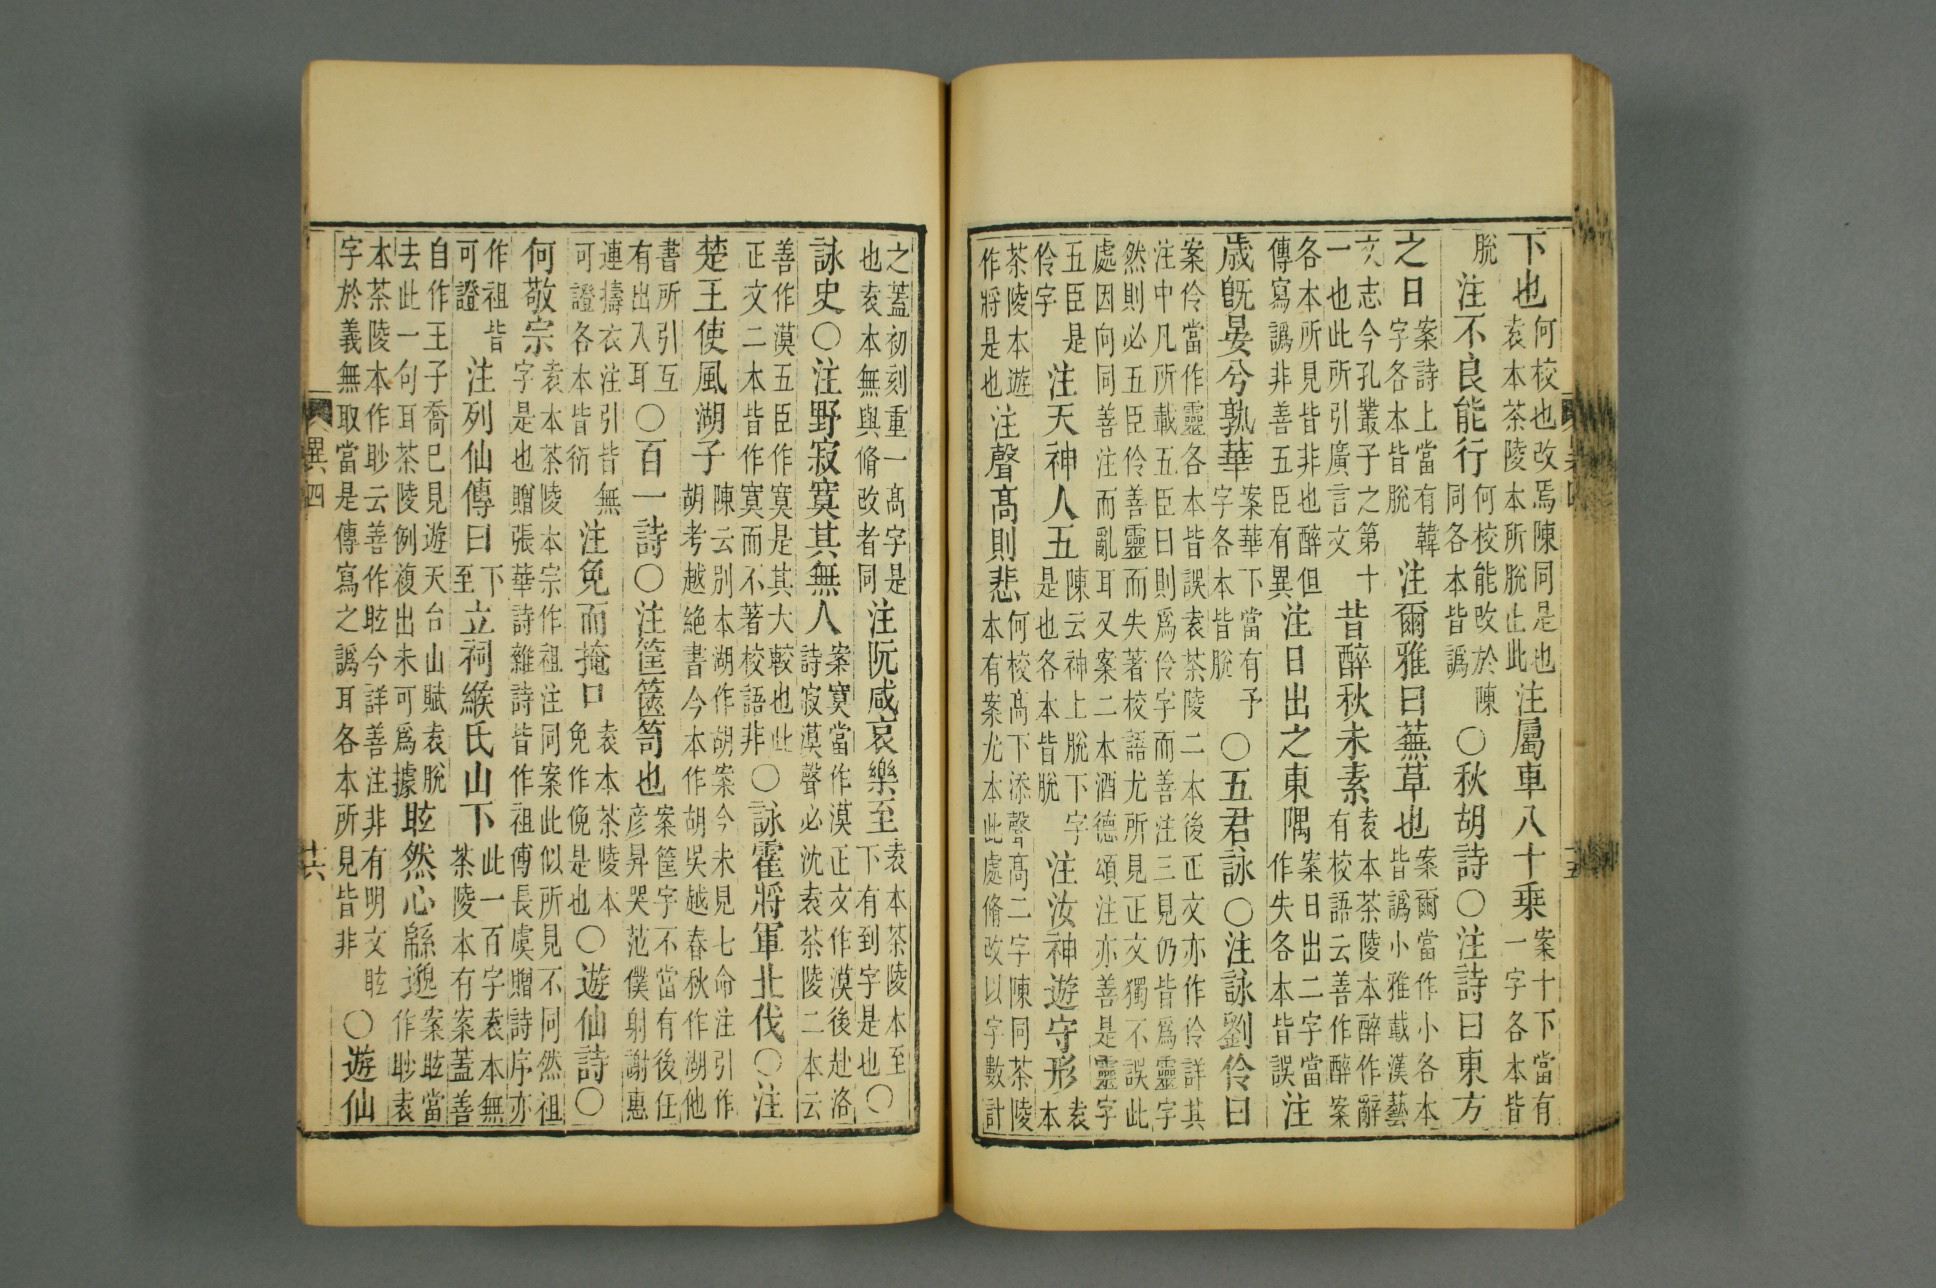 下也何校也改焉陳同是也袁本茶陵本所脫止此注屬車八十乘案十下當有一字各本皆
脫注不良能行何校能改於陳同各本皆譌○秋胡詩○注詩曰東方
之日案詩上當有韓字各本皆脫注爾雅曰蕪草也案爾當作小各本皆譌小雅載漢藝
文志今孔叢子之第十一也此所引廣言文昔醉秋未素袁本茶陵本醉作辭有校語云善作醉案
各本所見皆非也醉但傳寫譌非善五臣有異注日出之東隅案日出二字當作失各本皆誤注
歲旣晏兮孰華案華下當有予字各本皆脫○五君詠○注詠劉伶曰
案伶當作靈各本皆誤袁茶陵二本後正文亦作伶詳其注中凡所載五臣曰則爲伶字而善注三見仍皆爲靈字
然則必五臣伶善靈而失著校語尤所見正文獨不誤此處因向同善注而亂耳又案二本酒德頌注亦善是靈字
五臣是伶字注天神人五陳云神上脫下字是也各本皆脫注汝神遊守形袁本
茶陵本遊作將是也注聲高則悲何校高下添聲高二字陳同茶陵本有案尤本此處脩改以字數計
之蓋初刻重一高字是也袁本無與脩改者同注阮咸哀樂至袁本茶陵本至下有到字是也○
詠史○注野寂寞其無人案寞當作漠正文作漠後赴洛詩寂漠聲必沈袁茶陵二本云
善作漠五臣作寞是其大較也此正文二本皆作寞而不著校語非○詠霍將軍北伐○注
楚王使風湖子陳云別本湖作胡案今未見七命注引作胡考越絕書今本作胡吳越春秋作湖他
書所引互有出入耳○百一詩○注筐篋笥也案筐字不當有後任彥昇哭范僕射謝惠
連擣衣注引皆無可證各本皆衍注免而掩口袁本茶陵本免作俛是也○遊仙詩○
何敬宗袁本茶陵本宗作祖注同案此似所見不同然祖字是也贈張華詩雜詩皆作祖傅長虞贈詩序亦
作祖皆可證注列仙傳曰下至立祠緱氏山下此一百字袁本無茶陵本有案蓋善
自作王子喬已見遊天台山賦袁脫去此一句耳茶陵例複出未可爲據眩然心緜邈案眩當作眇袁
本茶陵本作眇云善作眩今詳善注非有明文眩字於義無取當是傳寫之譌耳各本所見皆非○遊仙
異四
十六